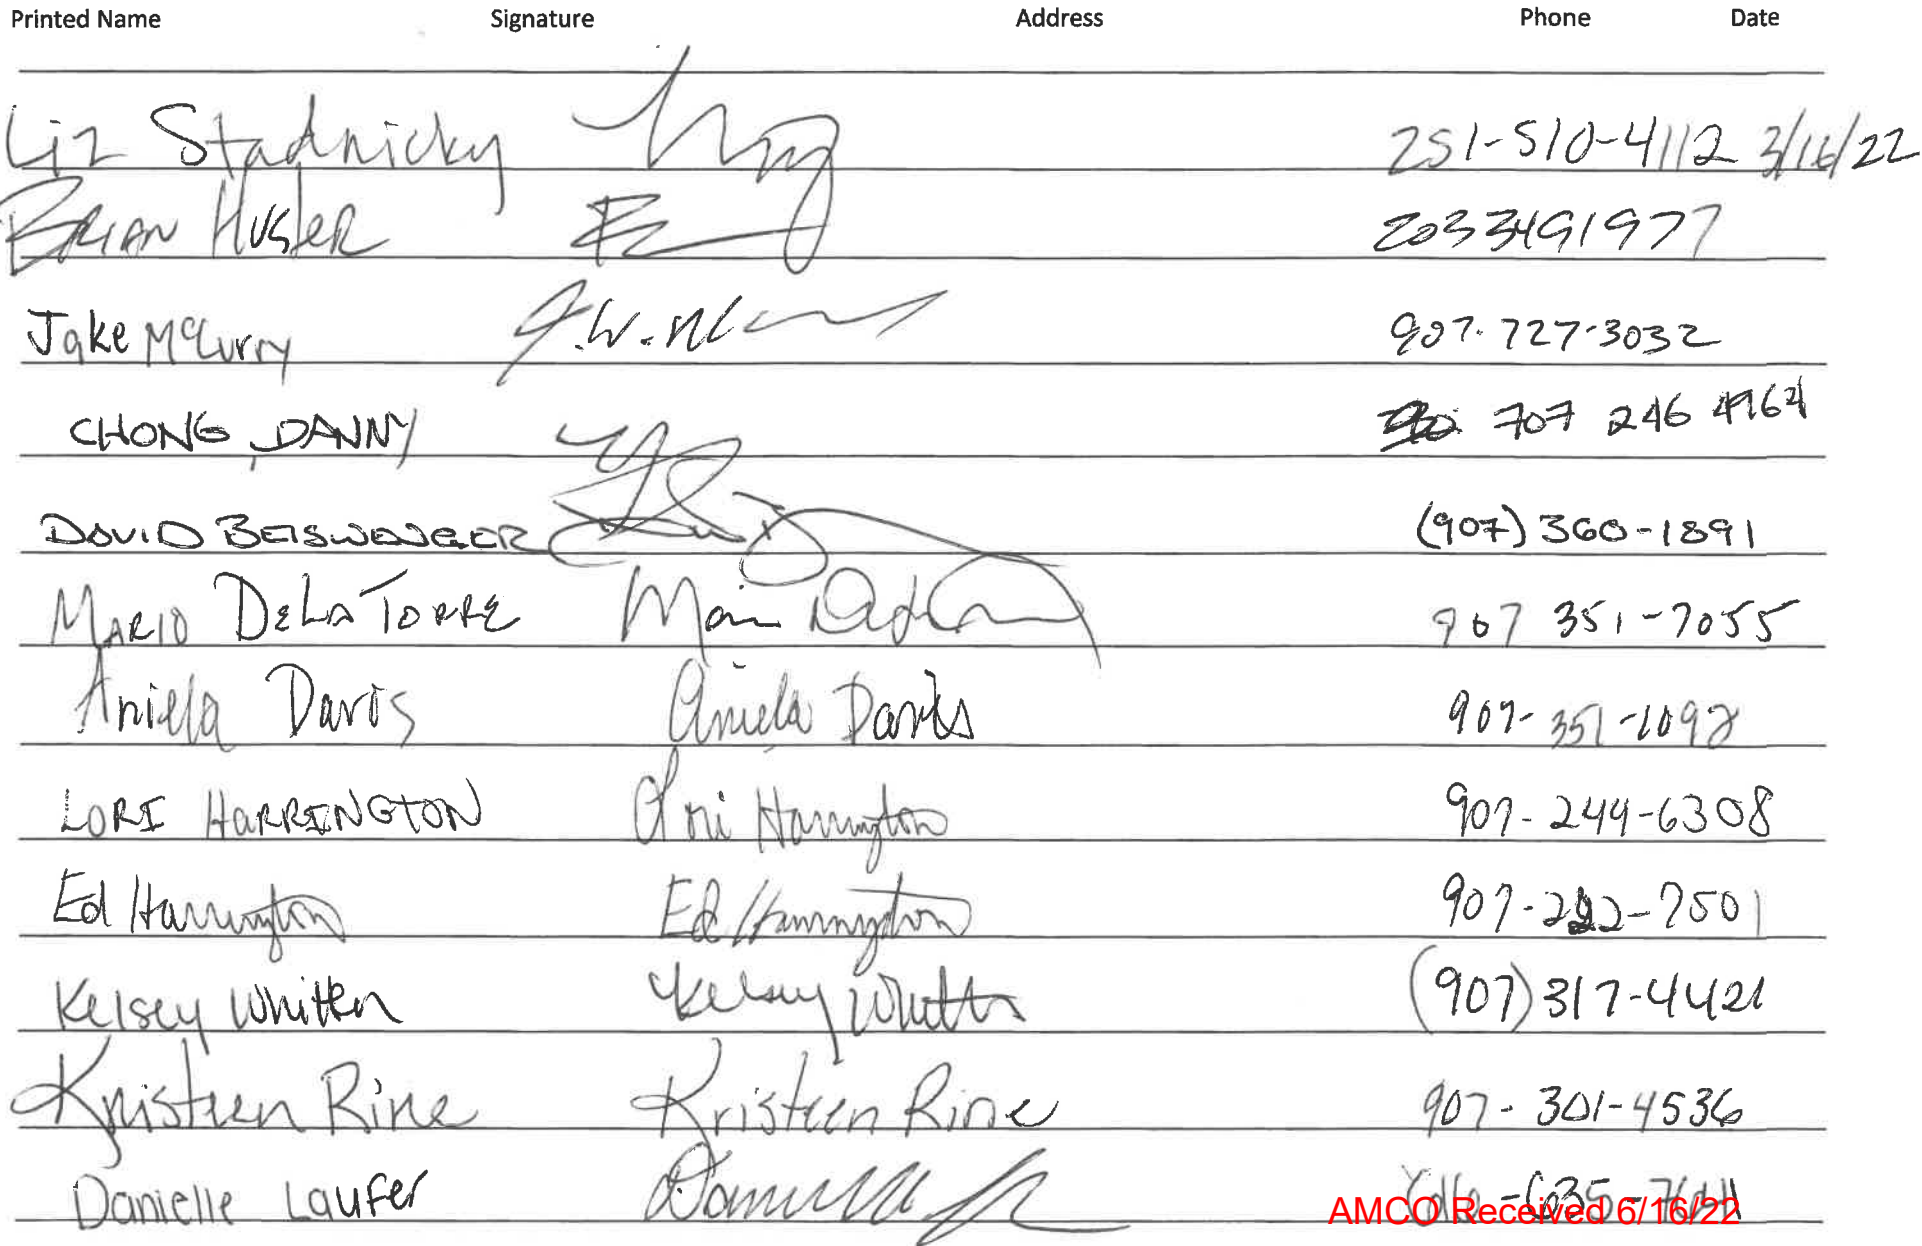 Printed Name Signature Address Phone Date
Liz Stadnicky 251-510-4112 3/16/22
BRIAN HUSLER 2033491977
Jake McCurry J.W. 907-727-3032
CHONG, DANNY 707 246 4964
DAVID BEISWENGER (907) 360-1891
MARIO DELA TORRE 907 351-7055
Aniela Davis Aniela Davis 907-351-1092
LORI HARRINGTON Lori Harrington 907-244-6308
Ed Harrington Ed Harrington 907-222-7501
Kelsey Whitten Kelsey Whitten (907) 317-4421
Kristeen Rine Kristeen Rine 907-301-4536
Danielle Laufer
AMCO Received 6/16/22